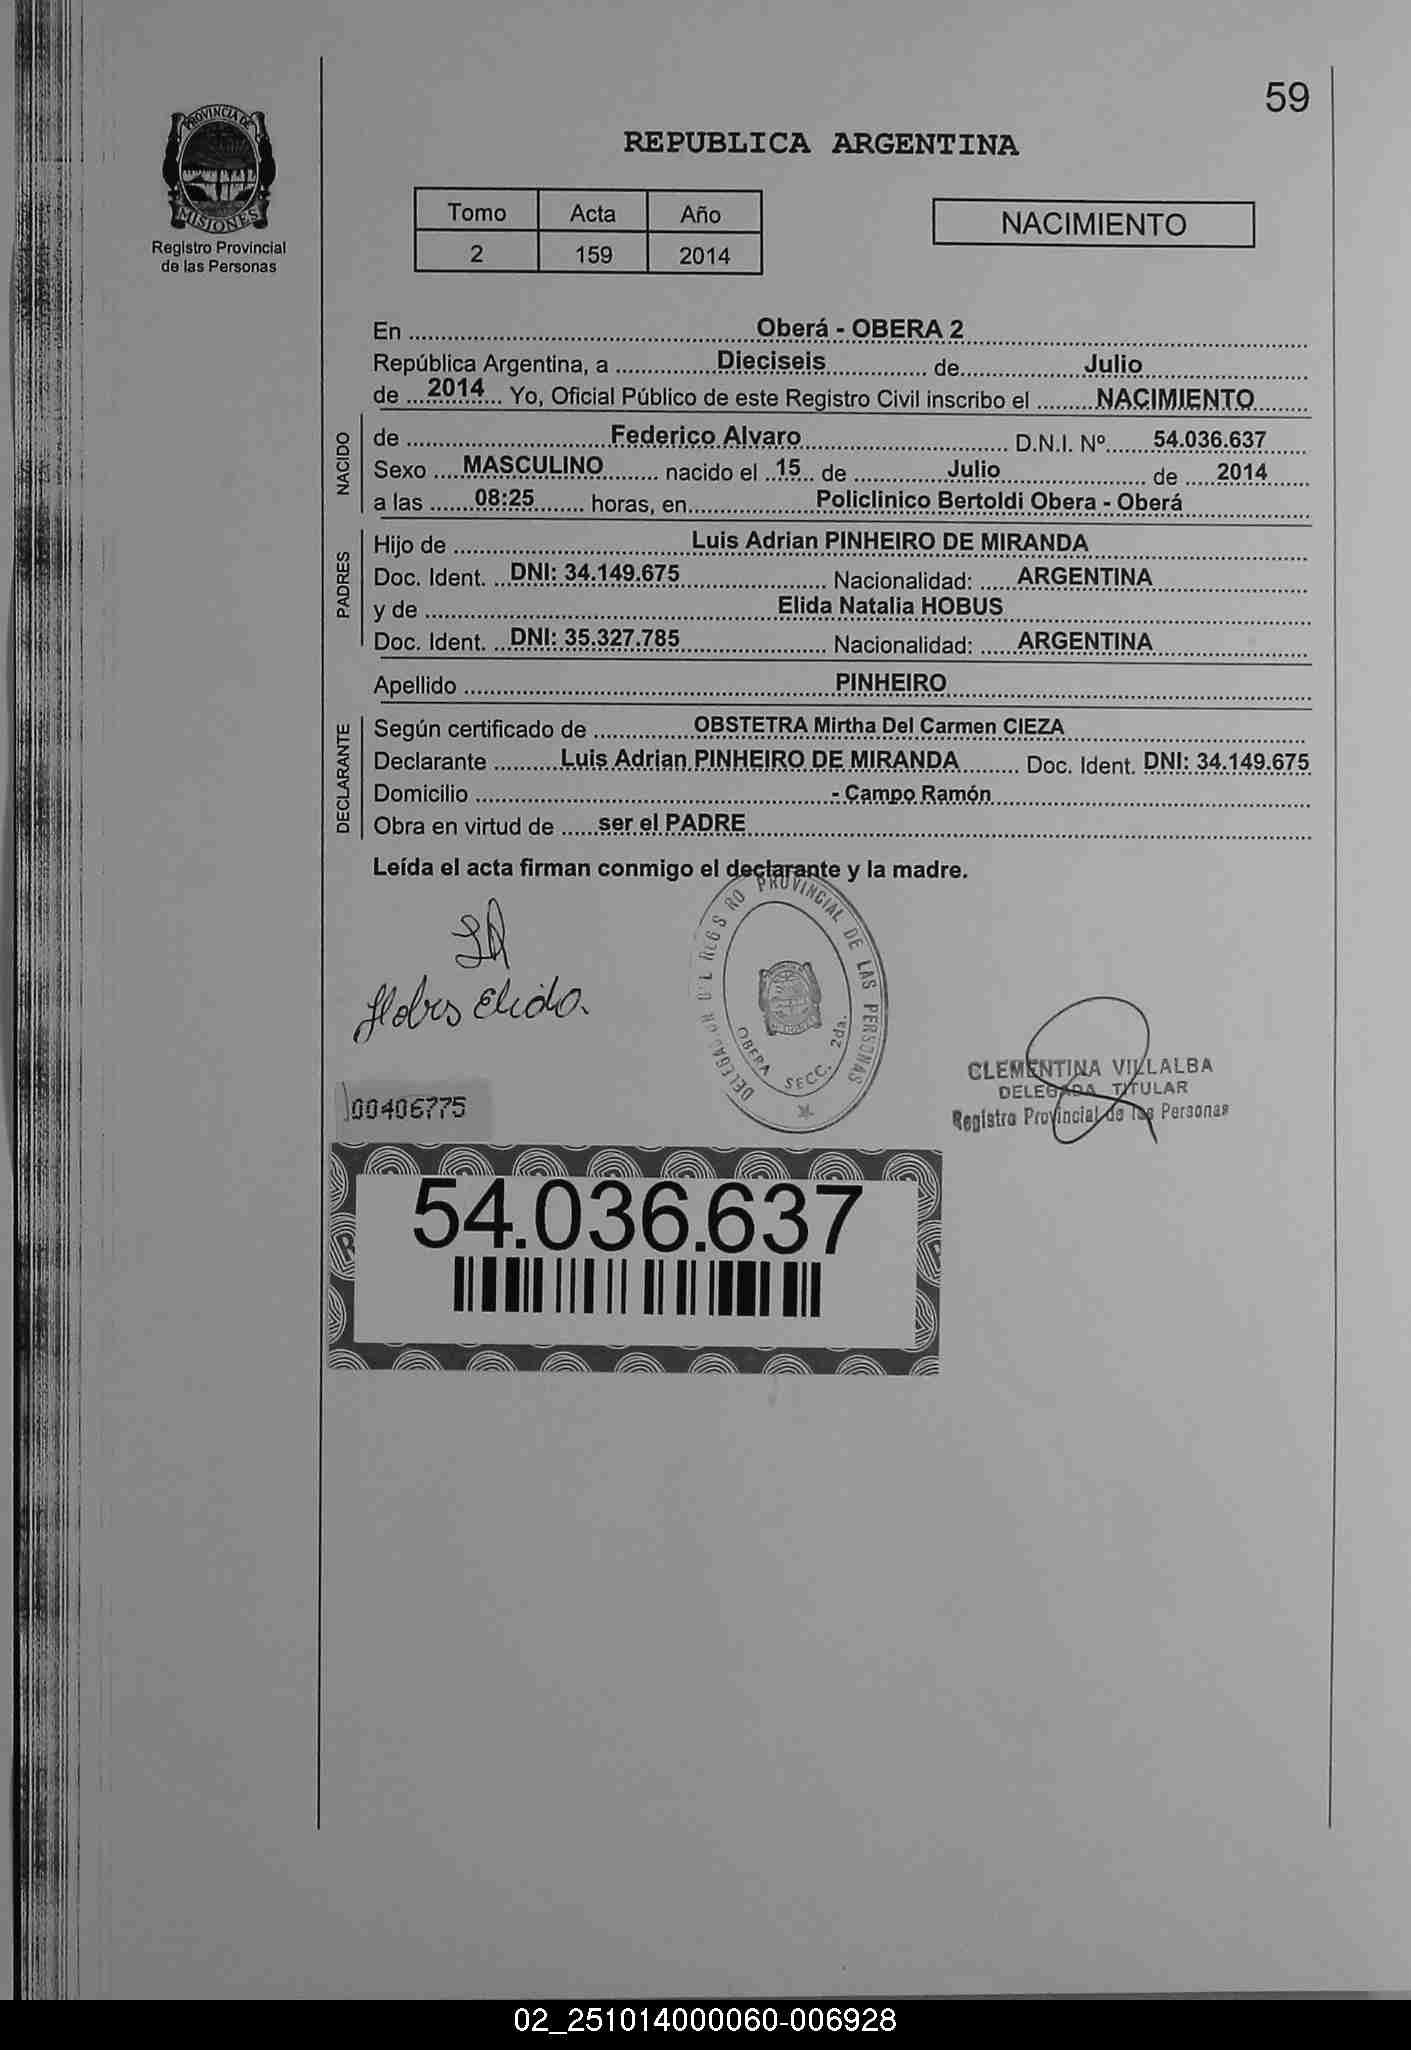 59
PROVINCIA DE
MISIONES
Registro Provincial
de las Personas
REPUBLICA ARGENTINA
Tomo Acta Año
2 159 2014
NACIMIENTO
En Oberá - OBERA 2
República Argentina, a Dieciseis de Julio
de 2014 Yo, Oficial Público de este Registro Civil inscribo el NACIMIENTO
NACIDO
de Federico Alvaro D.N.I. Nº 54.036.637
Sexo MASCULINO nacido el 15 de Julio de 2014
a las 08:25 horas, en Policlinico Bertoldi Obera - Oberá
PADRES
Hijo de Luis Adrian PINHEIRO DE MIRANDA
Doc. Ident. DNI: 34.149.675 Nacionalidad: ARGENTINA
y de Elida Natalia HOBUS
Doc. Ident. DNI: 35.327.785 Nacionalidad: ARGENTINA
Apellido PINHEIRO
DECLARANTE
Según certificado de OBSTETRA Mirtha Del Carmen CIEZA
Declarante Luis Adrian PINHEIRO DE MIRANDA Doc. Ident. DNI: 34.149.675
Domicilio - Campo Ramón
Obra en virtud de ser el PADRE
Leída el acta firman conmigo el declarante y la madre.
PROVINCIAL DE LAS PERSONAS
OBERA SECC. 2da.
CLEMENTINA VILLALBA
DELEGADA TITULAR
Registro Provincial de las Personas
00406775
54.036.637
02_251014000060-006928